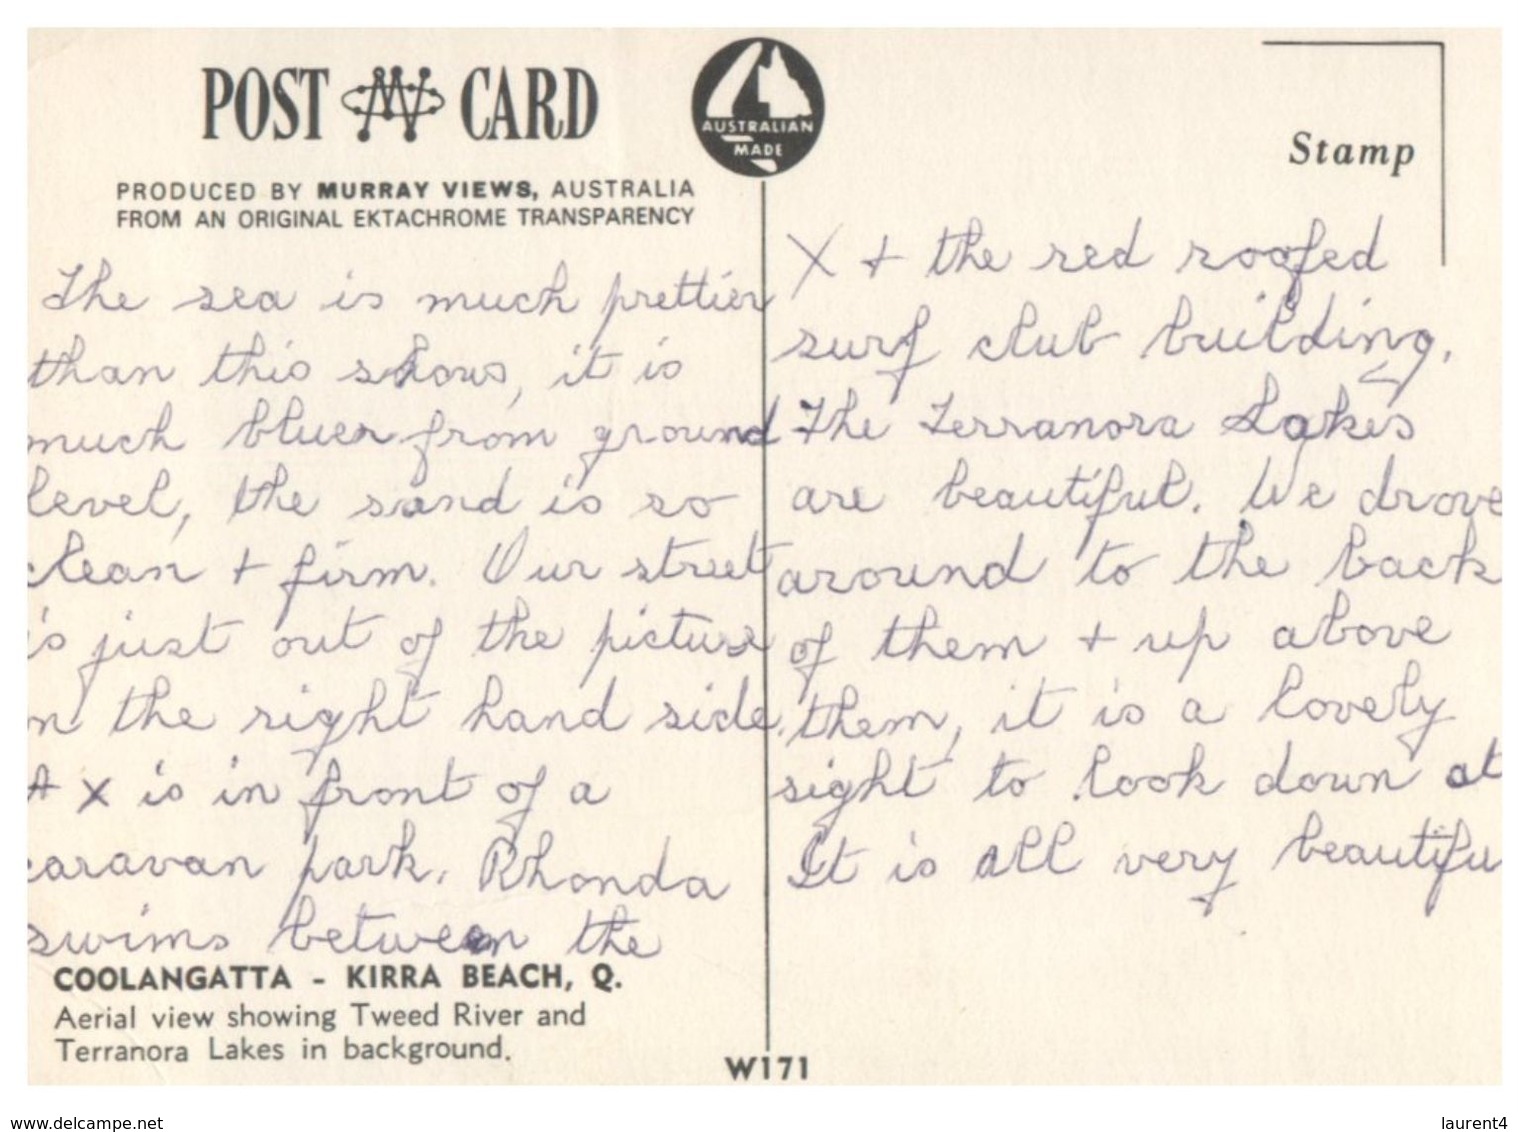 POST CARD
PRODUCED BY MURRAY VIEWS, AUSTRALIA
FROM AN ORIGINAL EKTACHROME TRANSPARENCY
AUSTRALIAN
MADE
Stamp
The sea is much prettier
than this shows, it is
much bluer from ground
level, the sand is so
clean + firm. Our street
is just out of the picture
n the right hand side.
A X is in front of a
caravan park. Rhonda
swims between the
X + the red roofed
surf club building.
The Terranora Lakes
are beautiful. We drove
around to the back
of them + up above
them, it is a lovely
sight to look down at
It is all very beautifu
COOLANGATTA - KIRRA BEACH, Q.
Aerial view showing Tweed River and
Terranora Lakes in background.
W171
www.delcampe.net
laurent4